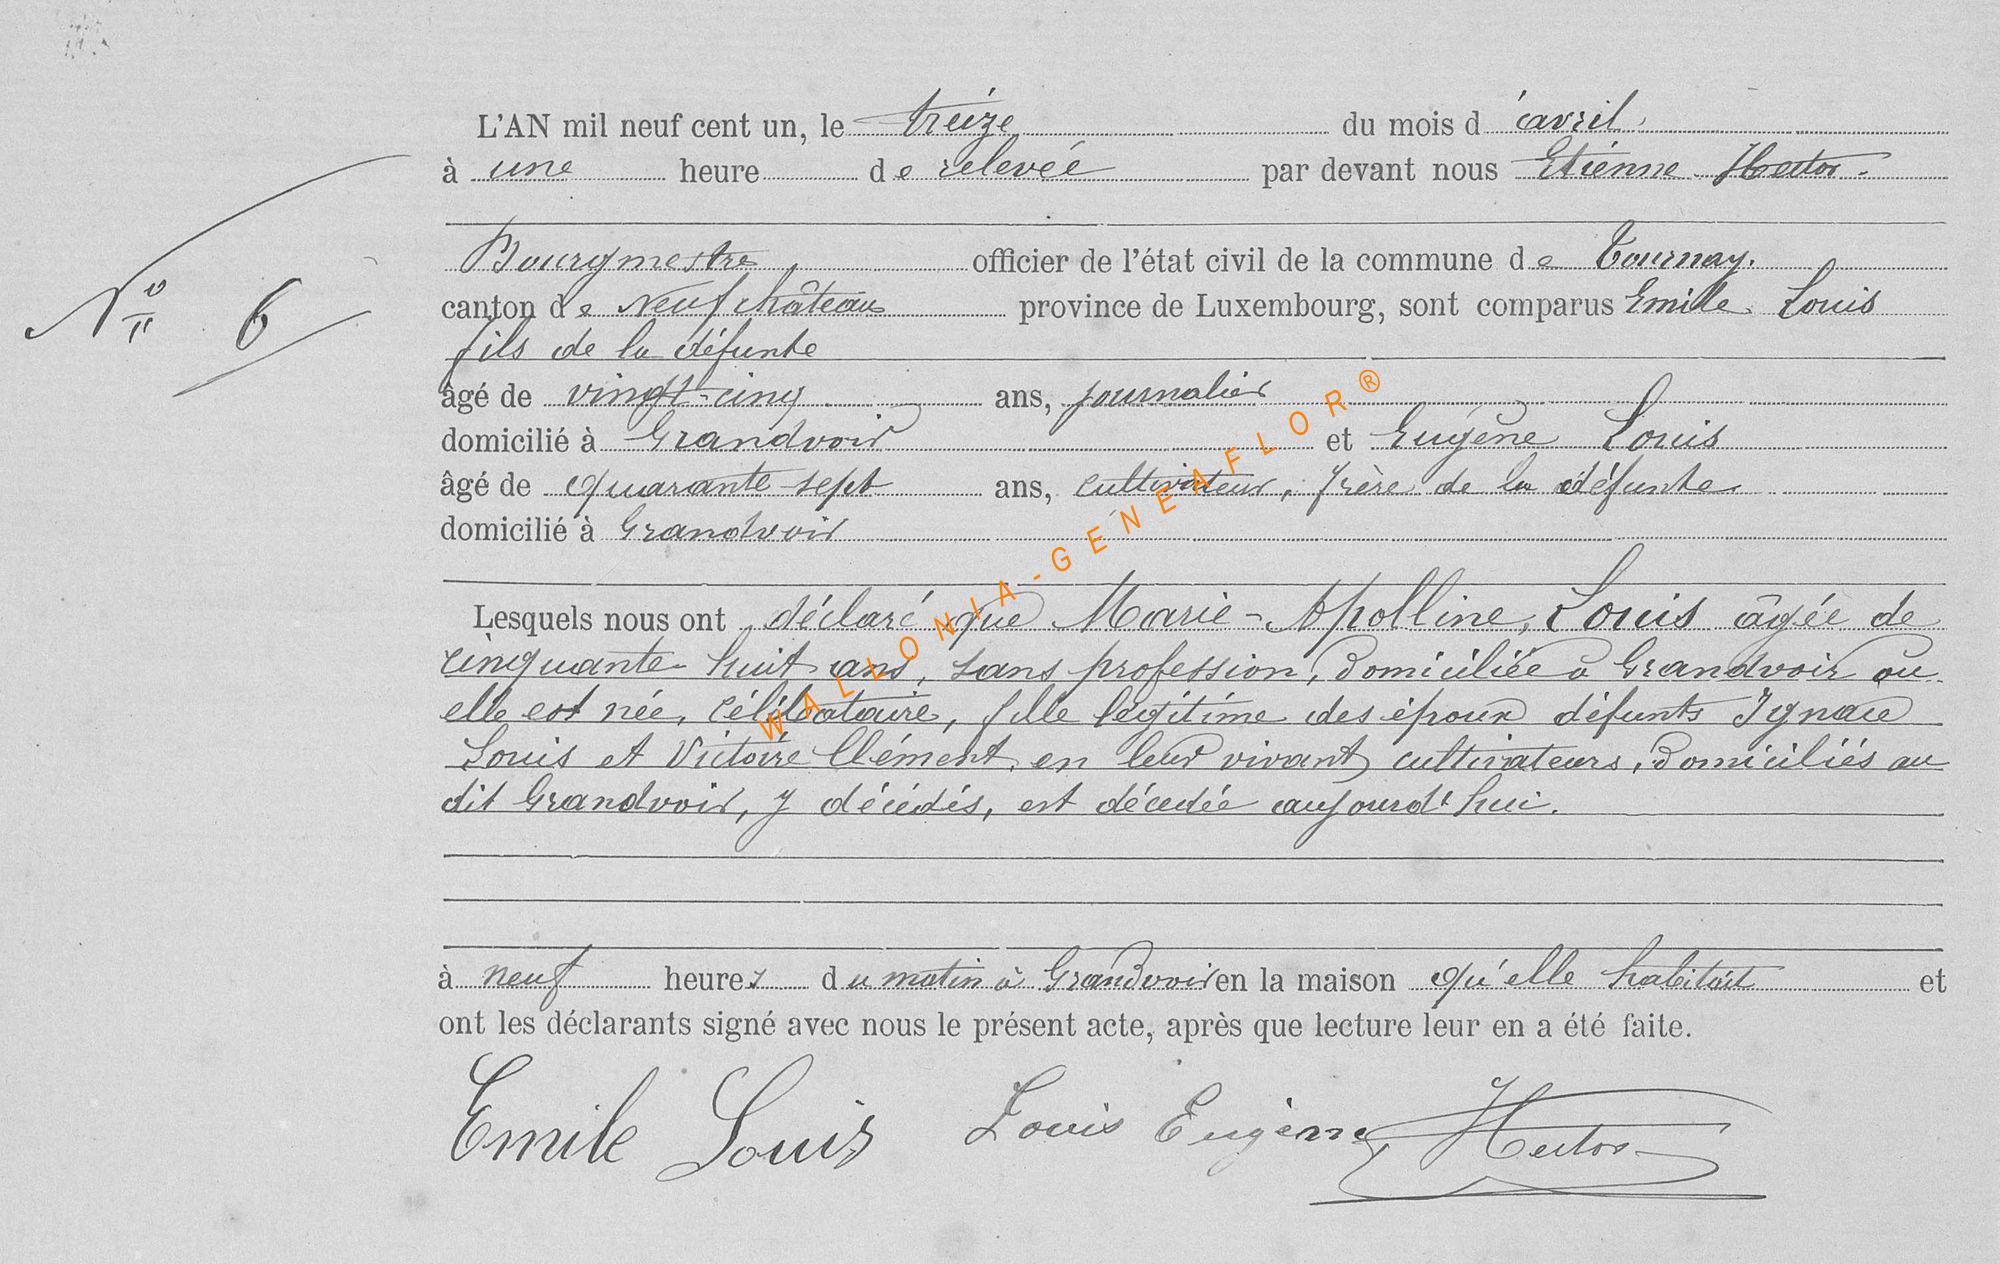 L'AN mil neuf cent un, le treize du mois d'avril
à une heure de relevée par devant nous Etienne Hector.
Bourgmestre officier de l'état civil de la commune de Tournay.
canton de Neufchâteau province de Luxembourg, sont comparus Emile Louis
fils de la défunte
N° 6
âgé de vingt-cinq ans, journalier
domicilié à Grandvoir et Eugène Louis
âgé de quarante-sept ans, cultivateur, frère de la défunte
domicilié à Grandvoir
Lesquels nous ont déclaré que Marie-Apolline, Louis âgée de
cinquante-huit ans, sans profession, domiciliée à Grandvoir où
elle est née, célibataire, fille légitime des époux défunts Ignace
Louis et Victoire Clément, en leur vivant cultivateurs, domiciliés au
dit Grandvoir, y décédés, est décédée aujourd'hui.
à neuf heures du matin à Grandvoir en la maison qu'elle habitait et
ont les déclarants signé avec nous le présent acte, après que lecture leur en a été faite.
Emile Louis Louis Eugène Hector
WALLONIA-GENEAFLOR®